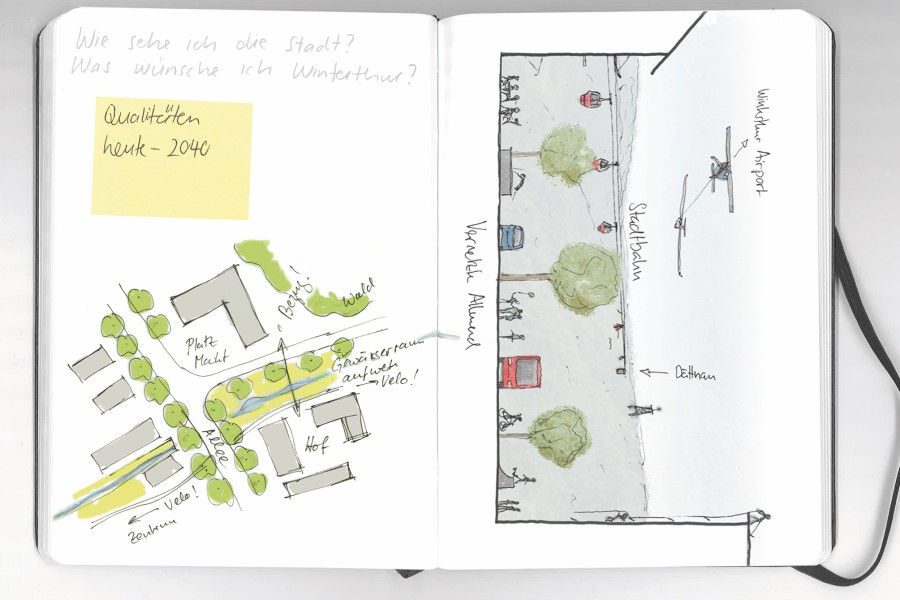 Wie sehe ich die Stadt?
Was wünsche ich Winterthur?
Qualitäten
heute – 2040
Wald
Bezug!
Platz
Markt
Gewässerraum
aufwerten
Velo!
Allee
Hof
Velo!
Zentrum
Winterthur Airport
Stadtbahn
Vernetzte Allmend
Dättnau